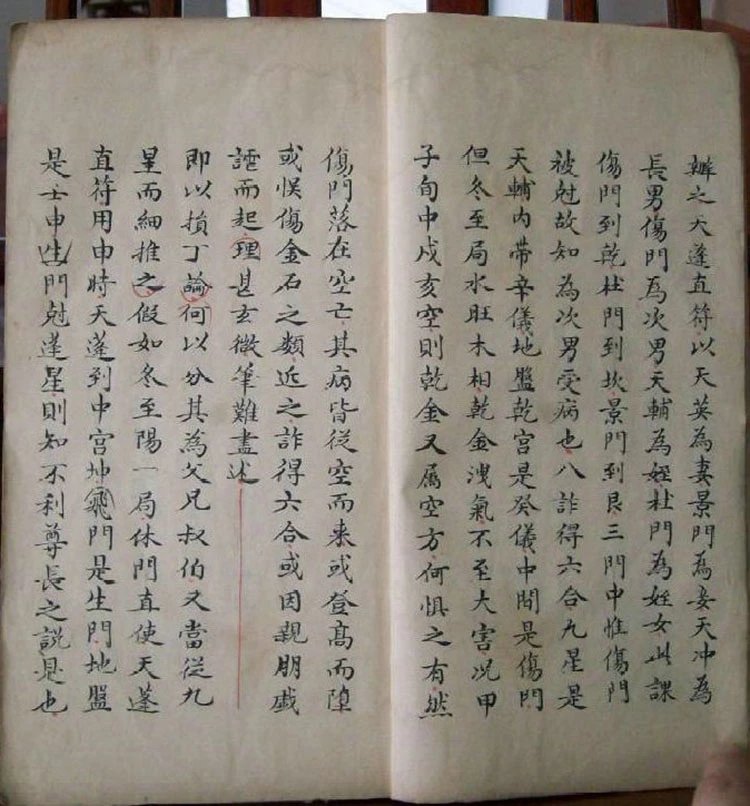 辨之天蓬直符以天英為妻景門為妾天冲為
長男傷門為次男天輔為姪杜門為姪女此課
傷門到乾杜門到坎景門到艮三門中惟傷門
被尅故知為次男受病也八詐得六合九星是
天輔内帶辛儀地盤乾宮是癸儀中間是傷門
但冬至局水旺木相乾金洩氣不至大害况甲
子旬中戌亥空則乾金又属空方何惧之有然
傷門落在空亡其病皆從空而来或登高而墮
或悮傷金石之類近之詐得六合或因親朋戱
謔而起理甚玄微筆難盡述
即以損丁論何以分其為父兄叔伯又當從九
星而細推之假如冬至陽一局休門直使天蓬
直符用申時天蓬到中宮坤飛門是生門地盤
是壬申生門尅蓬星則知不利尊長之說是也